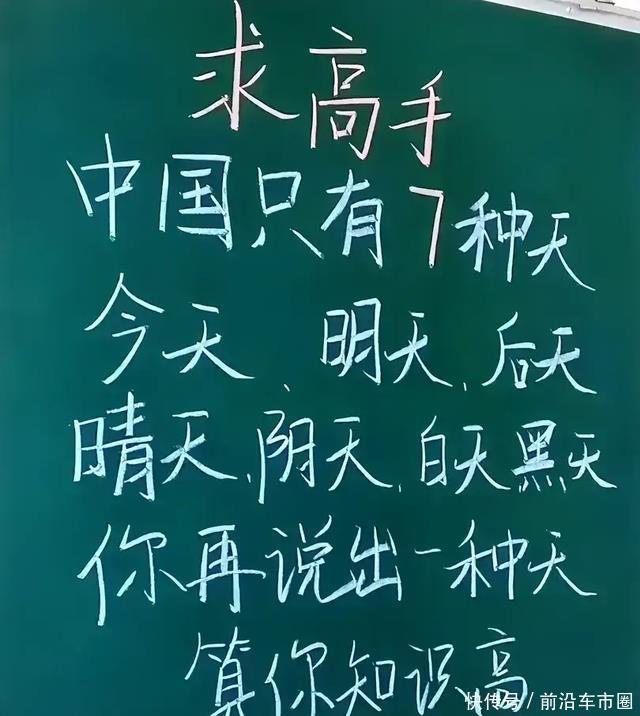 求高手
中国只有7种天
今天、明天、后天
晴天、阴天、白天黑天
你再说出一种天
算你知识高
快传号/前沿车市圈